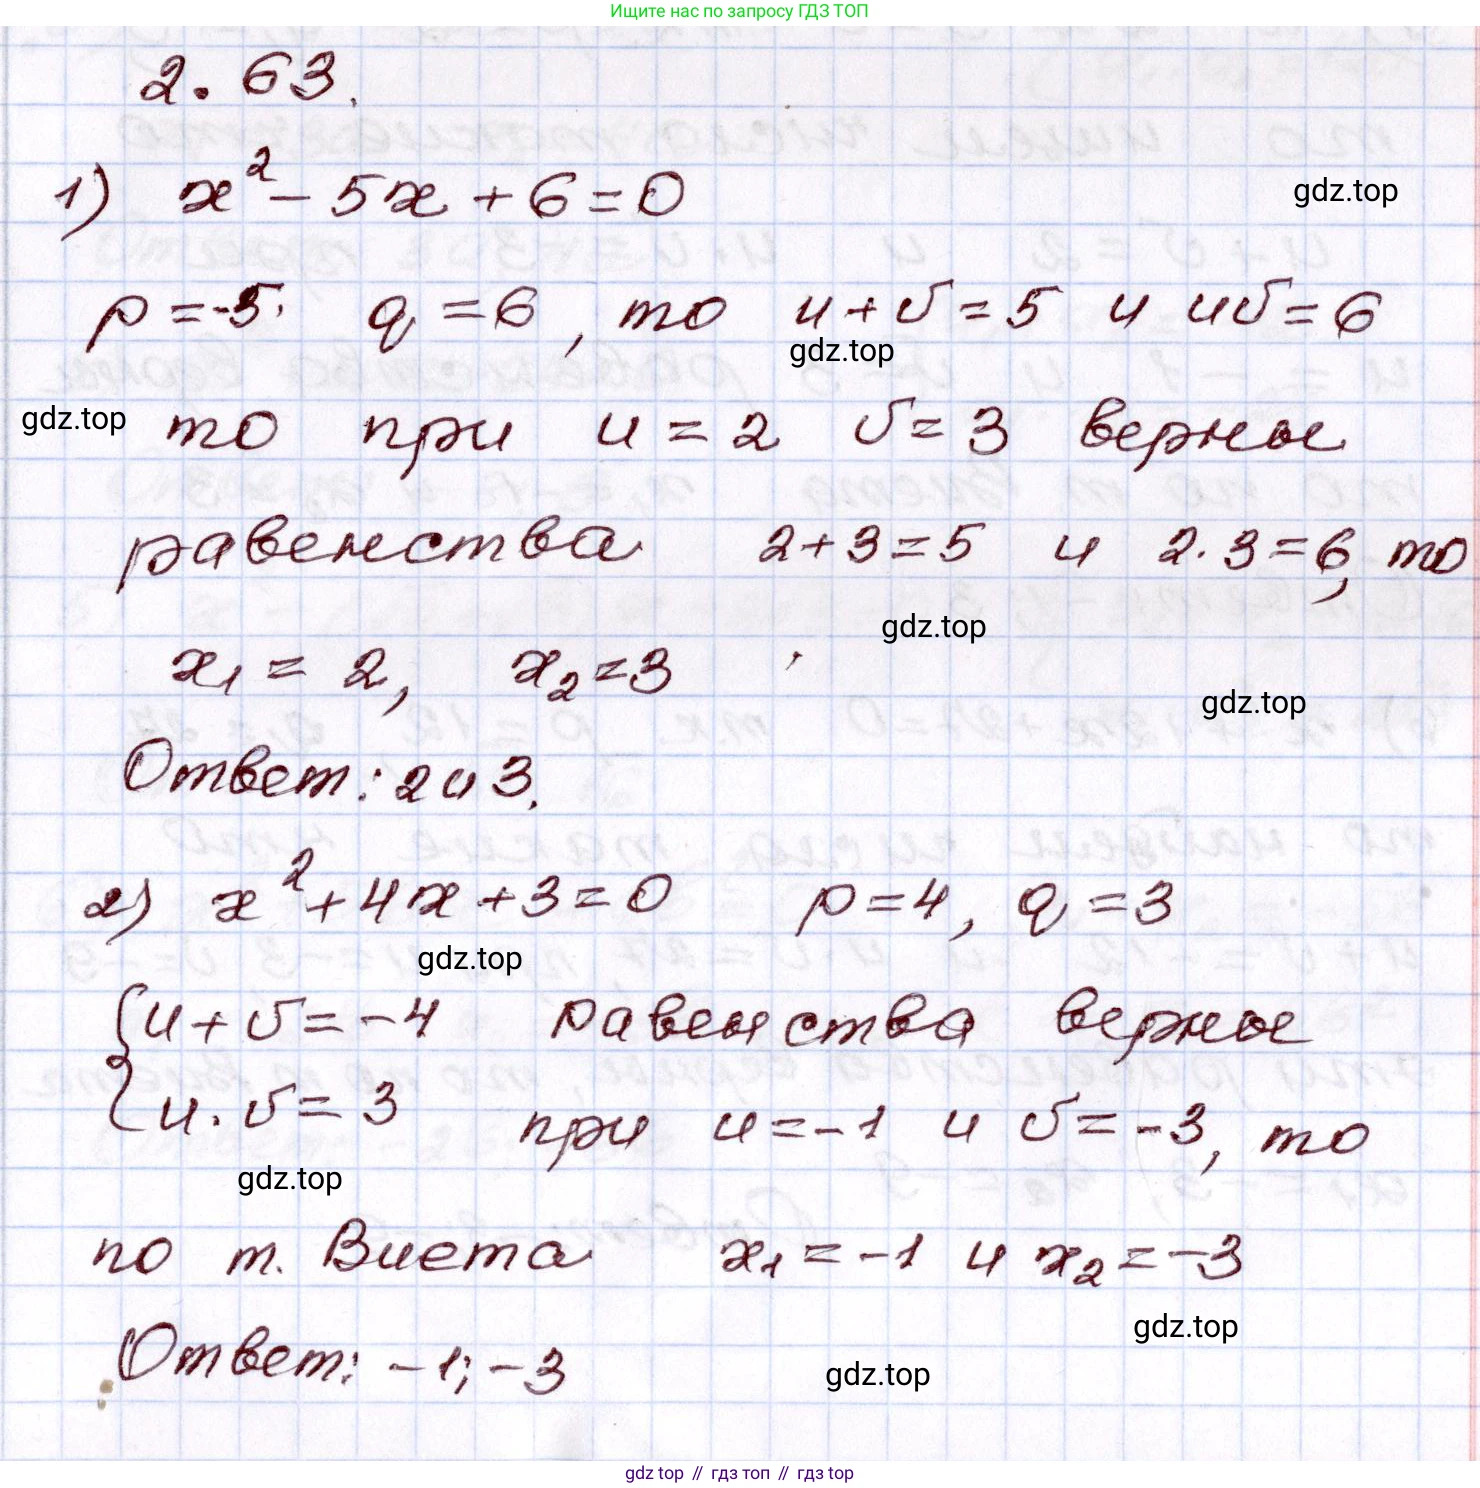 Ищите нас по запросу ГДЗ ТОП
2.63.
1) x² - 5x + 6 = 0
gdz.top
p = -5; q = 6, то u + v = 5 и uv = 6
gdz.top
gdz.top
то при u = 2 v = 3 верны
равенства 2 + 3 = 5 и 2 · 3 = 6, то
gdz.top
x₁ = 2, x₂ = 3
gdz.top
Ответ: 2 и 3.
2) x² + 4x + 3 = 0 p = 4, q = 3
gdz.top
{u + v = -4 равенства верные
u · v = 3 при u = -1 и v = -3, то
gdz.top
по т. Виета x₁ = -1 и x₂ = -3
gdz.top
Ответ: -1; -3
gdz.top
gdz top // гдз топ // гдз top